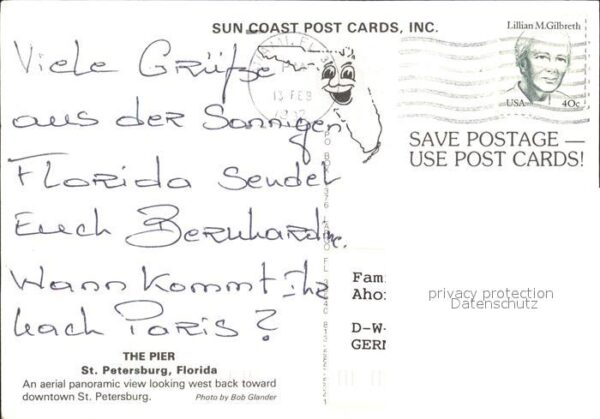 SUN COAST POST CARDS, INC.
Lillian M. Gilbreth
USA 40c
MIAMI, FL
PM
13 FEB
SAVE POSTAGE —
USE POST CARDS!
Viele Grüße
aus der Sonnigen
Florida sendet
Euch Bernhardine.
Wann kommt Ihr
nach Paris?
Fam
Aho
D-W-
GERN
privacy protection
Datenschutz
THE PIER
St. Petersburg, Florida
An aerial panoramic view looking west back toward
downtown St. Petersburg. Photo by Bob Glander
PO BOX